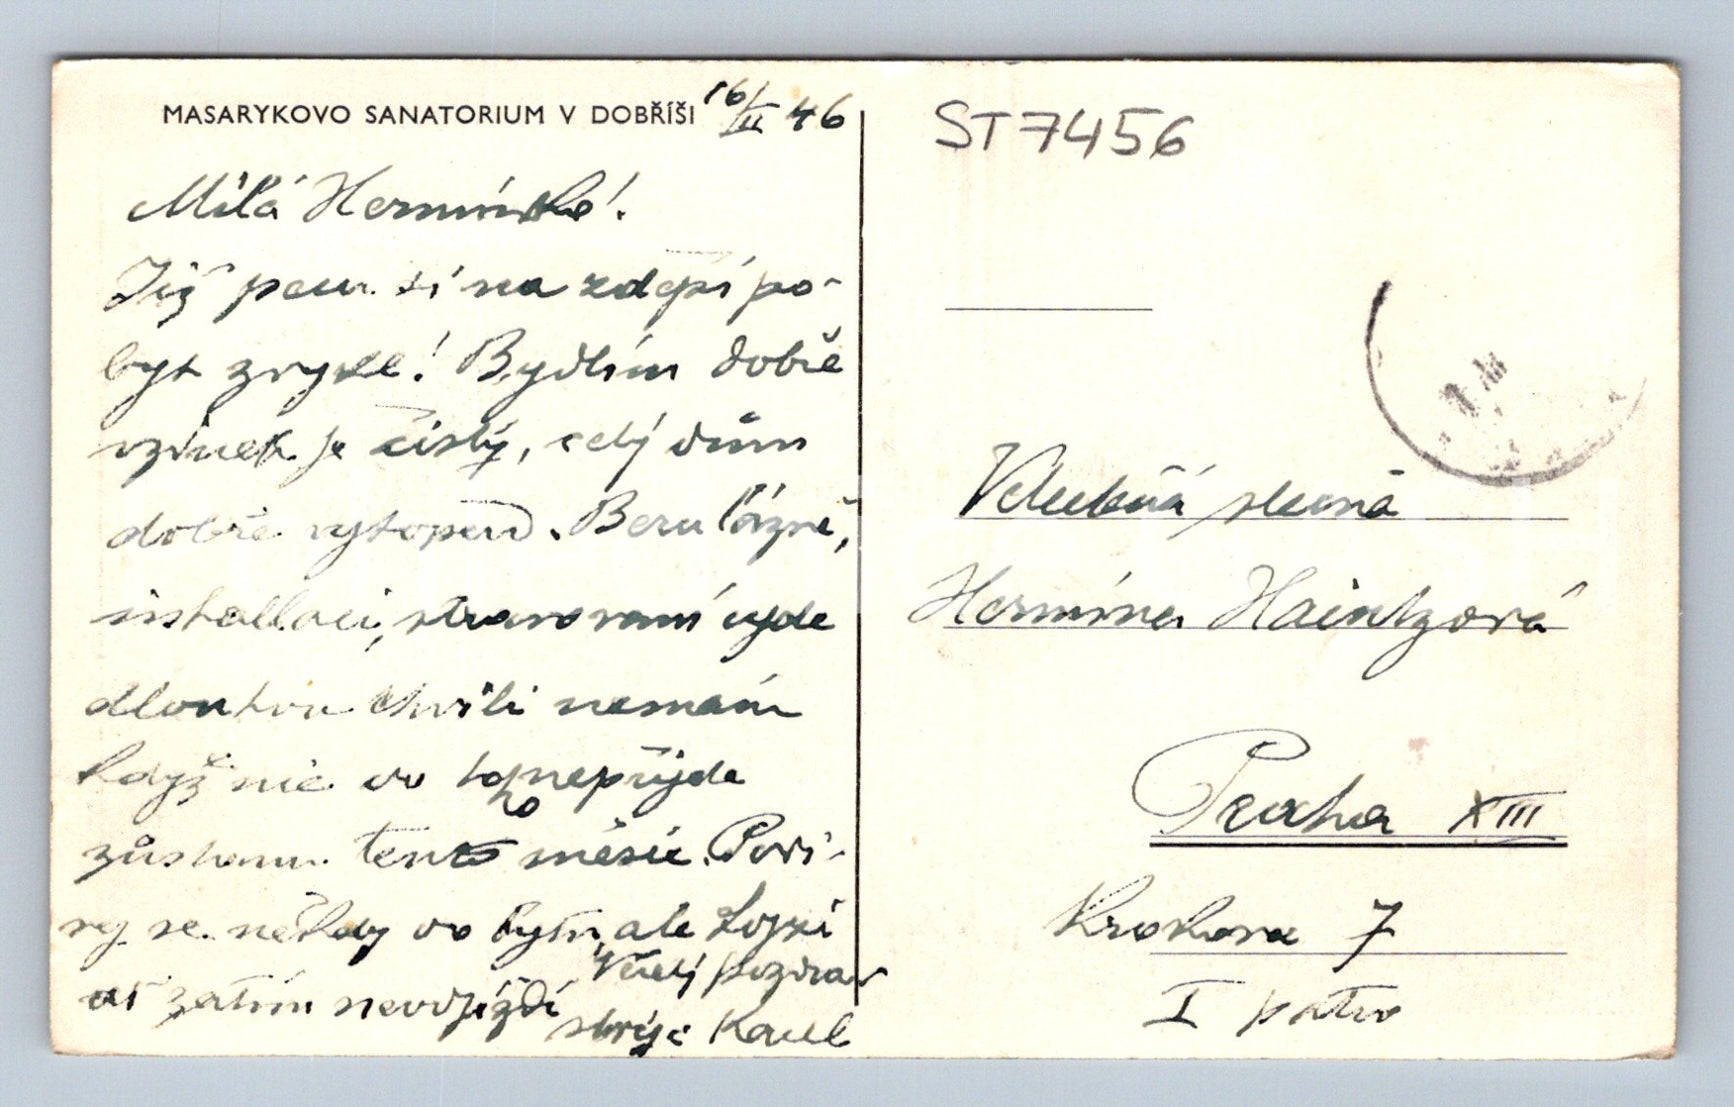 MASARYKOVO SANATORIUM V DOBŘÍŠI 16/II 46
ST7456
Milá Hermínko!
Již jsem si na zdejší po-
byt zvykl! Bydlím dobře
vzduch je čistý, celý dům
dobře vytopený. Beru lázně,
inhallaci, stravování ujde
dlouhou chvíli nemám
když nic do toho nepřijde
zůstanu tento měsíc. Podí-
vej se někdy do bytu, ale Lojzi
ať zatím neodjíždí
Vřelý pozdrav
strýc Karel
Velectěná slečna
Hermína Haintzová
Praha XIII
Krokova 7
I patro